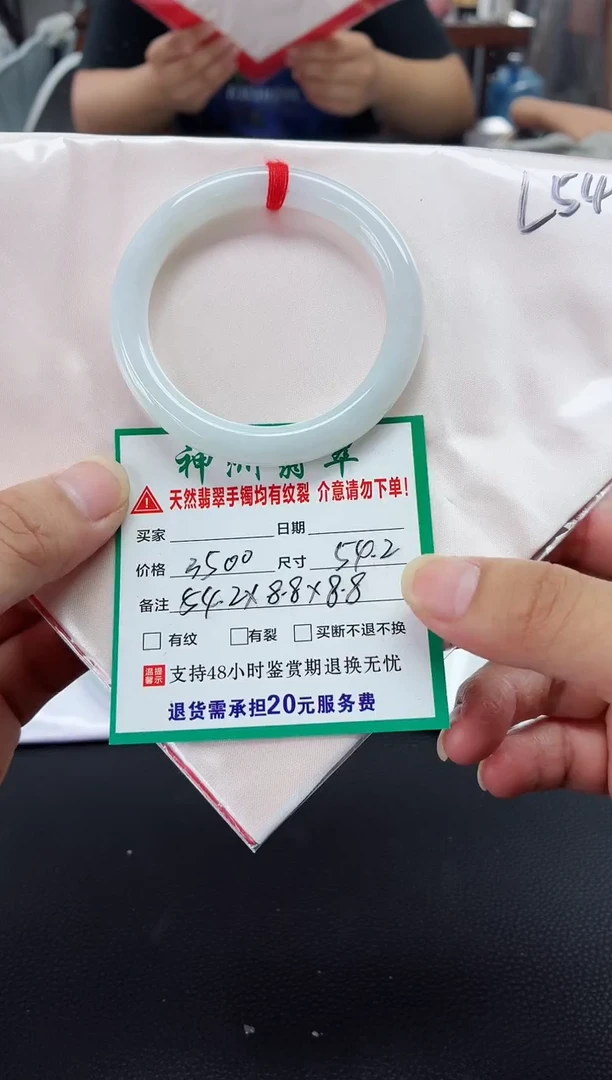 L54
神州翡翠
天然翡翠手镯均有纹裂 介意请勿下单!
买家 日期
价格 3500 尺寸 54.2
备注 54.2X8.8X8.8
有纹 有裂 买断不退不换
温馨提示 支持48小时鉴赏期退换无忧
退货需承担20元服务费